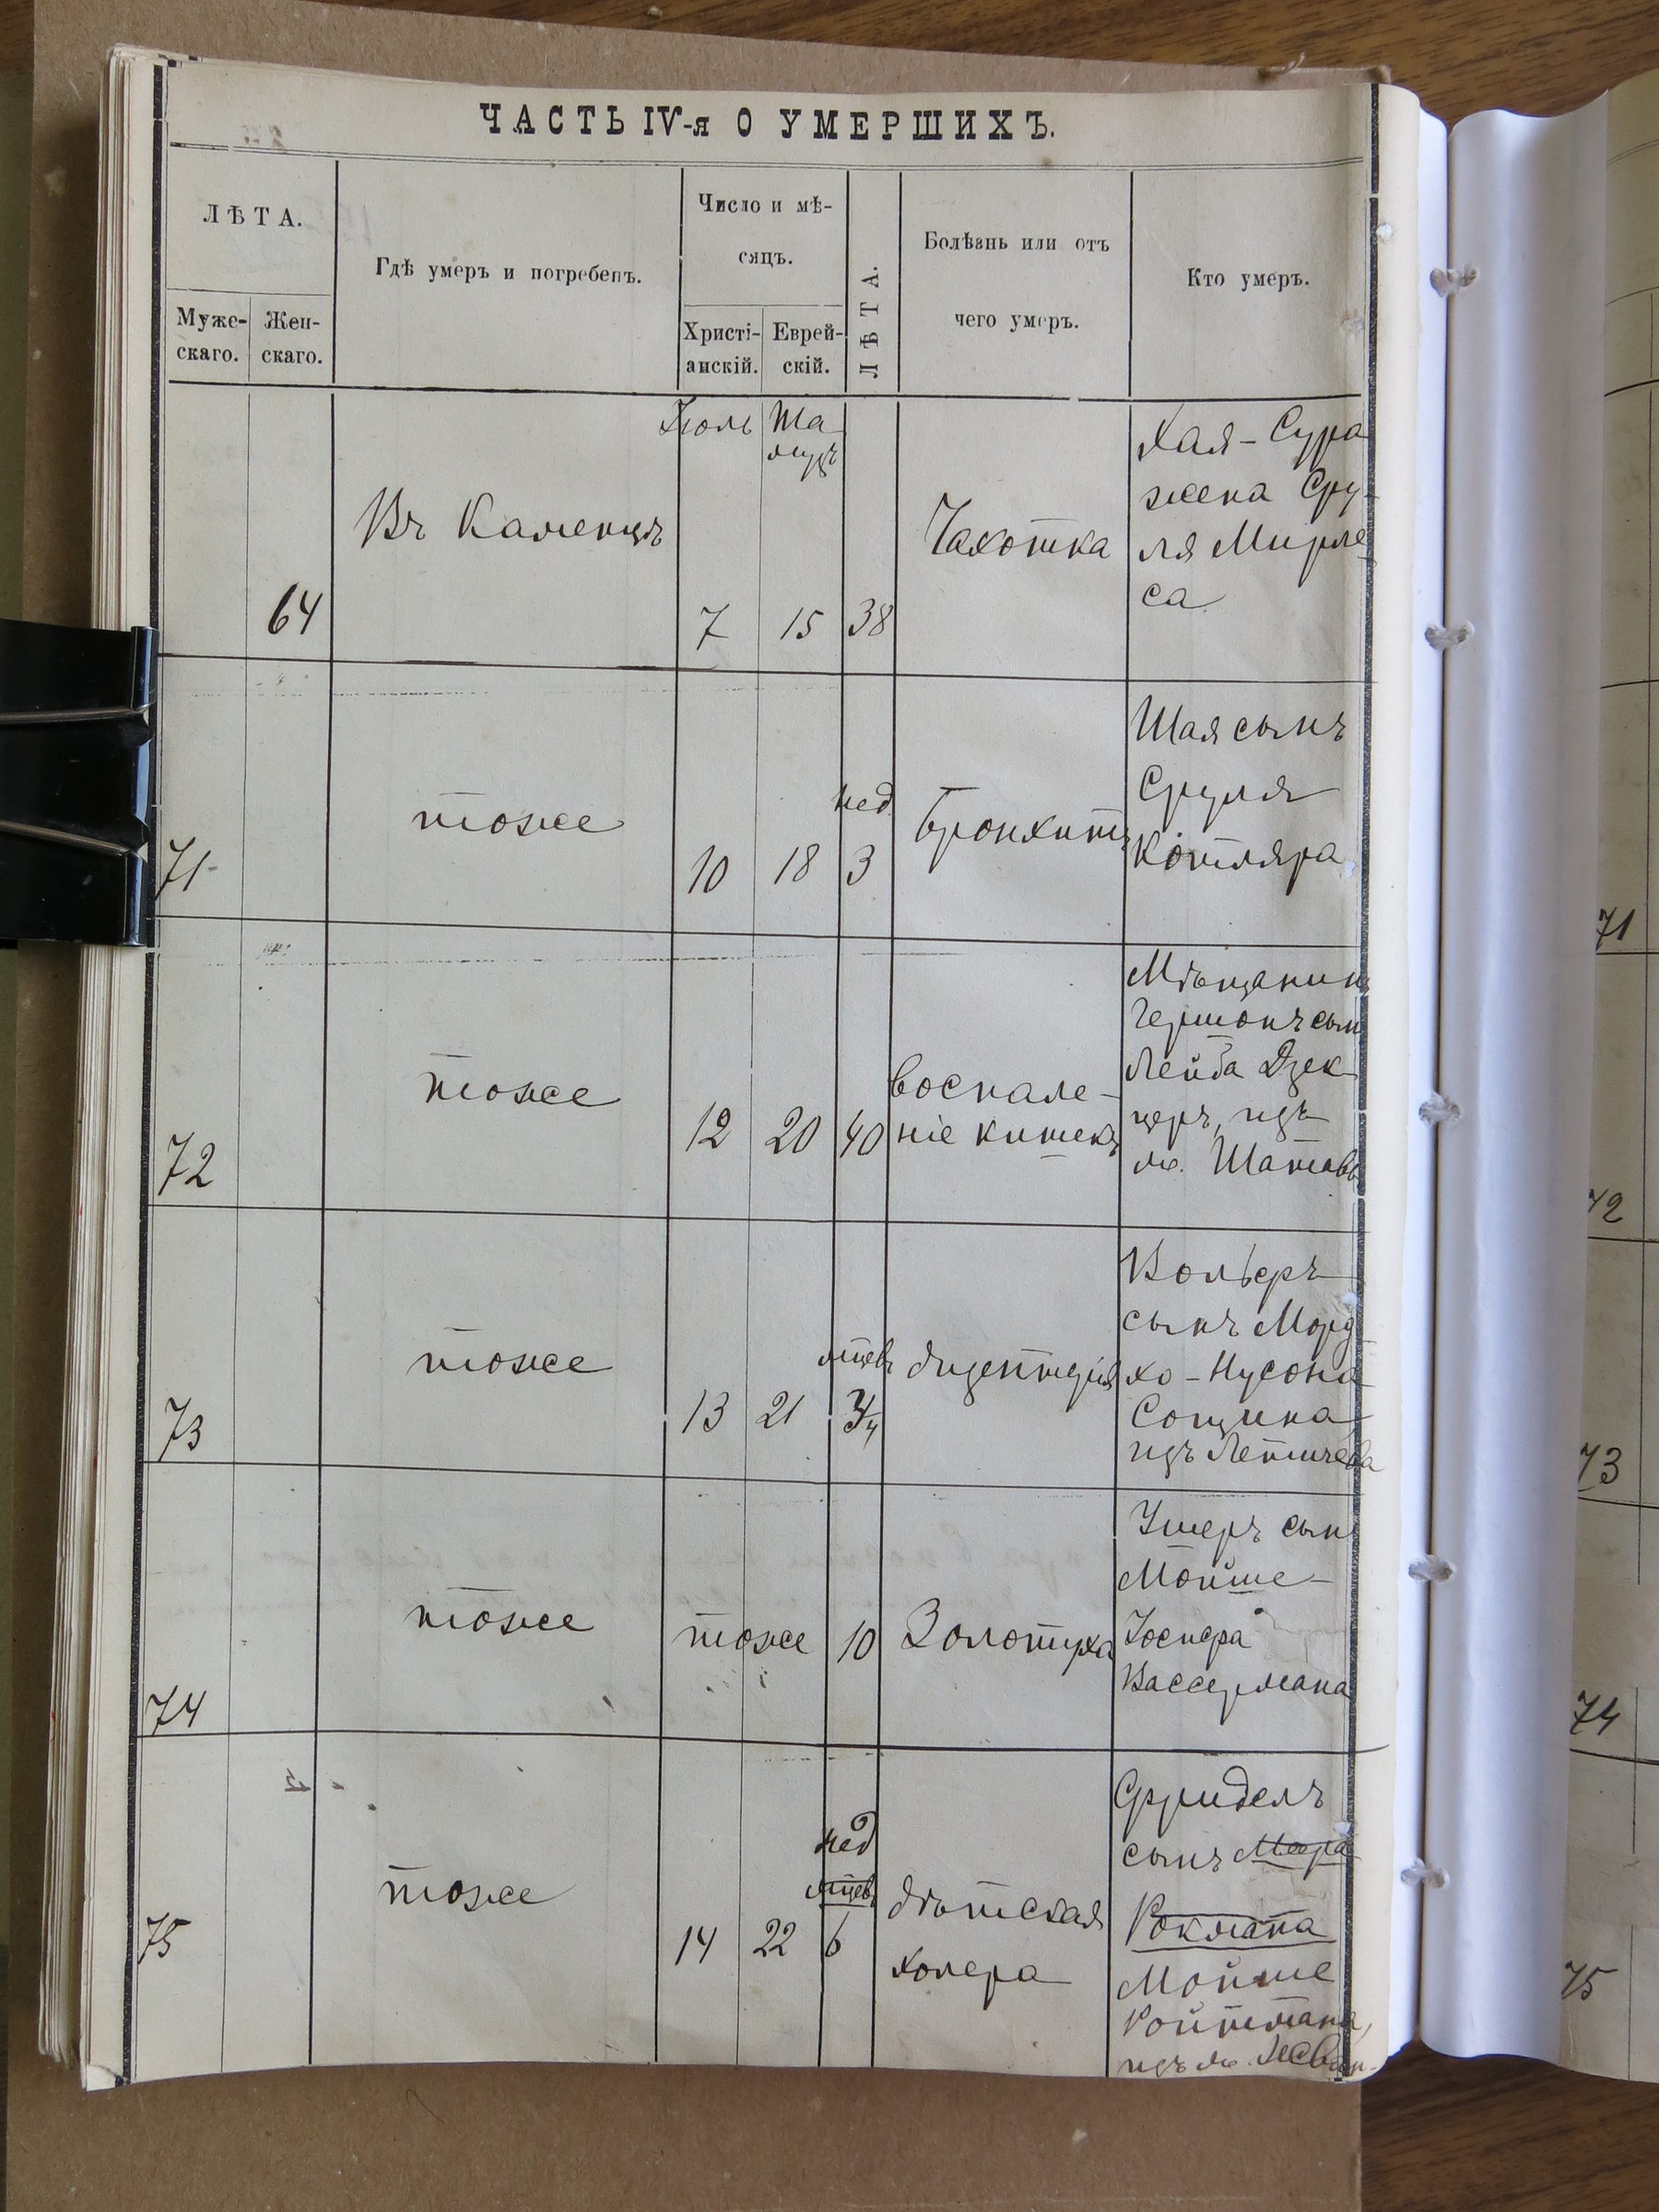 ЧАСТЬ IV-я О УМЕРШИХЪ.
ЛѢТА.
Муже-
скаго.
Жен-
скаго.
Гдѣ умеръ и погребенъ.
Число и мѣ-
сяцъ.
Христі-
анскій.
Еврей-
скій.
ЛѢТА.
Болѣзнь или отъ
чего умеръ.
Кто умеръ.
64
Въ Каменцѣ
Іюль
7
Та
музъ
15
38
Чахотка
Хая-Сура
жена Сру-
ля Мирле
са
71
тоже
10
18
нед
3
Бронхитъ
Шая сынъ
Сруля
Котляра
72
тоже
12
20
40
воспале-
ніе кишекъ
Мѣщанинъ
Гершонъ сын
Лейба Дзек
церъ, изъ
м. Шатавы
73
тоже
13
21
мѣсец
3/4
дизентерія
Сынъ Морд
ко-Нусона
изъ Летичева
74
тоже
тоже
10
Золотуха
Ушеръ сын
Мойше-
Іосифа
Вассермана
75
тоже
14
22
нед
6
дѣтская
холера
Фридель
сынъ Меера
Рокмана
Мойше
Ройтмана,
изъ м.
71
72
73
74
75